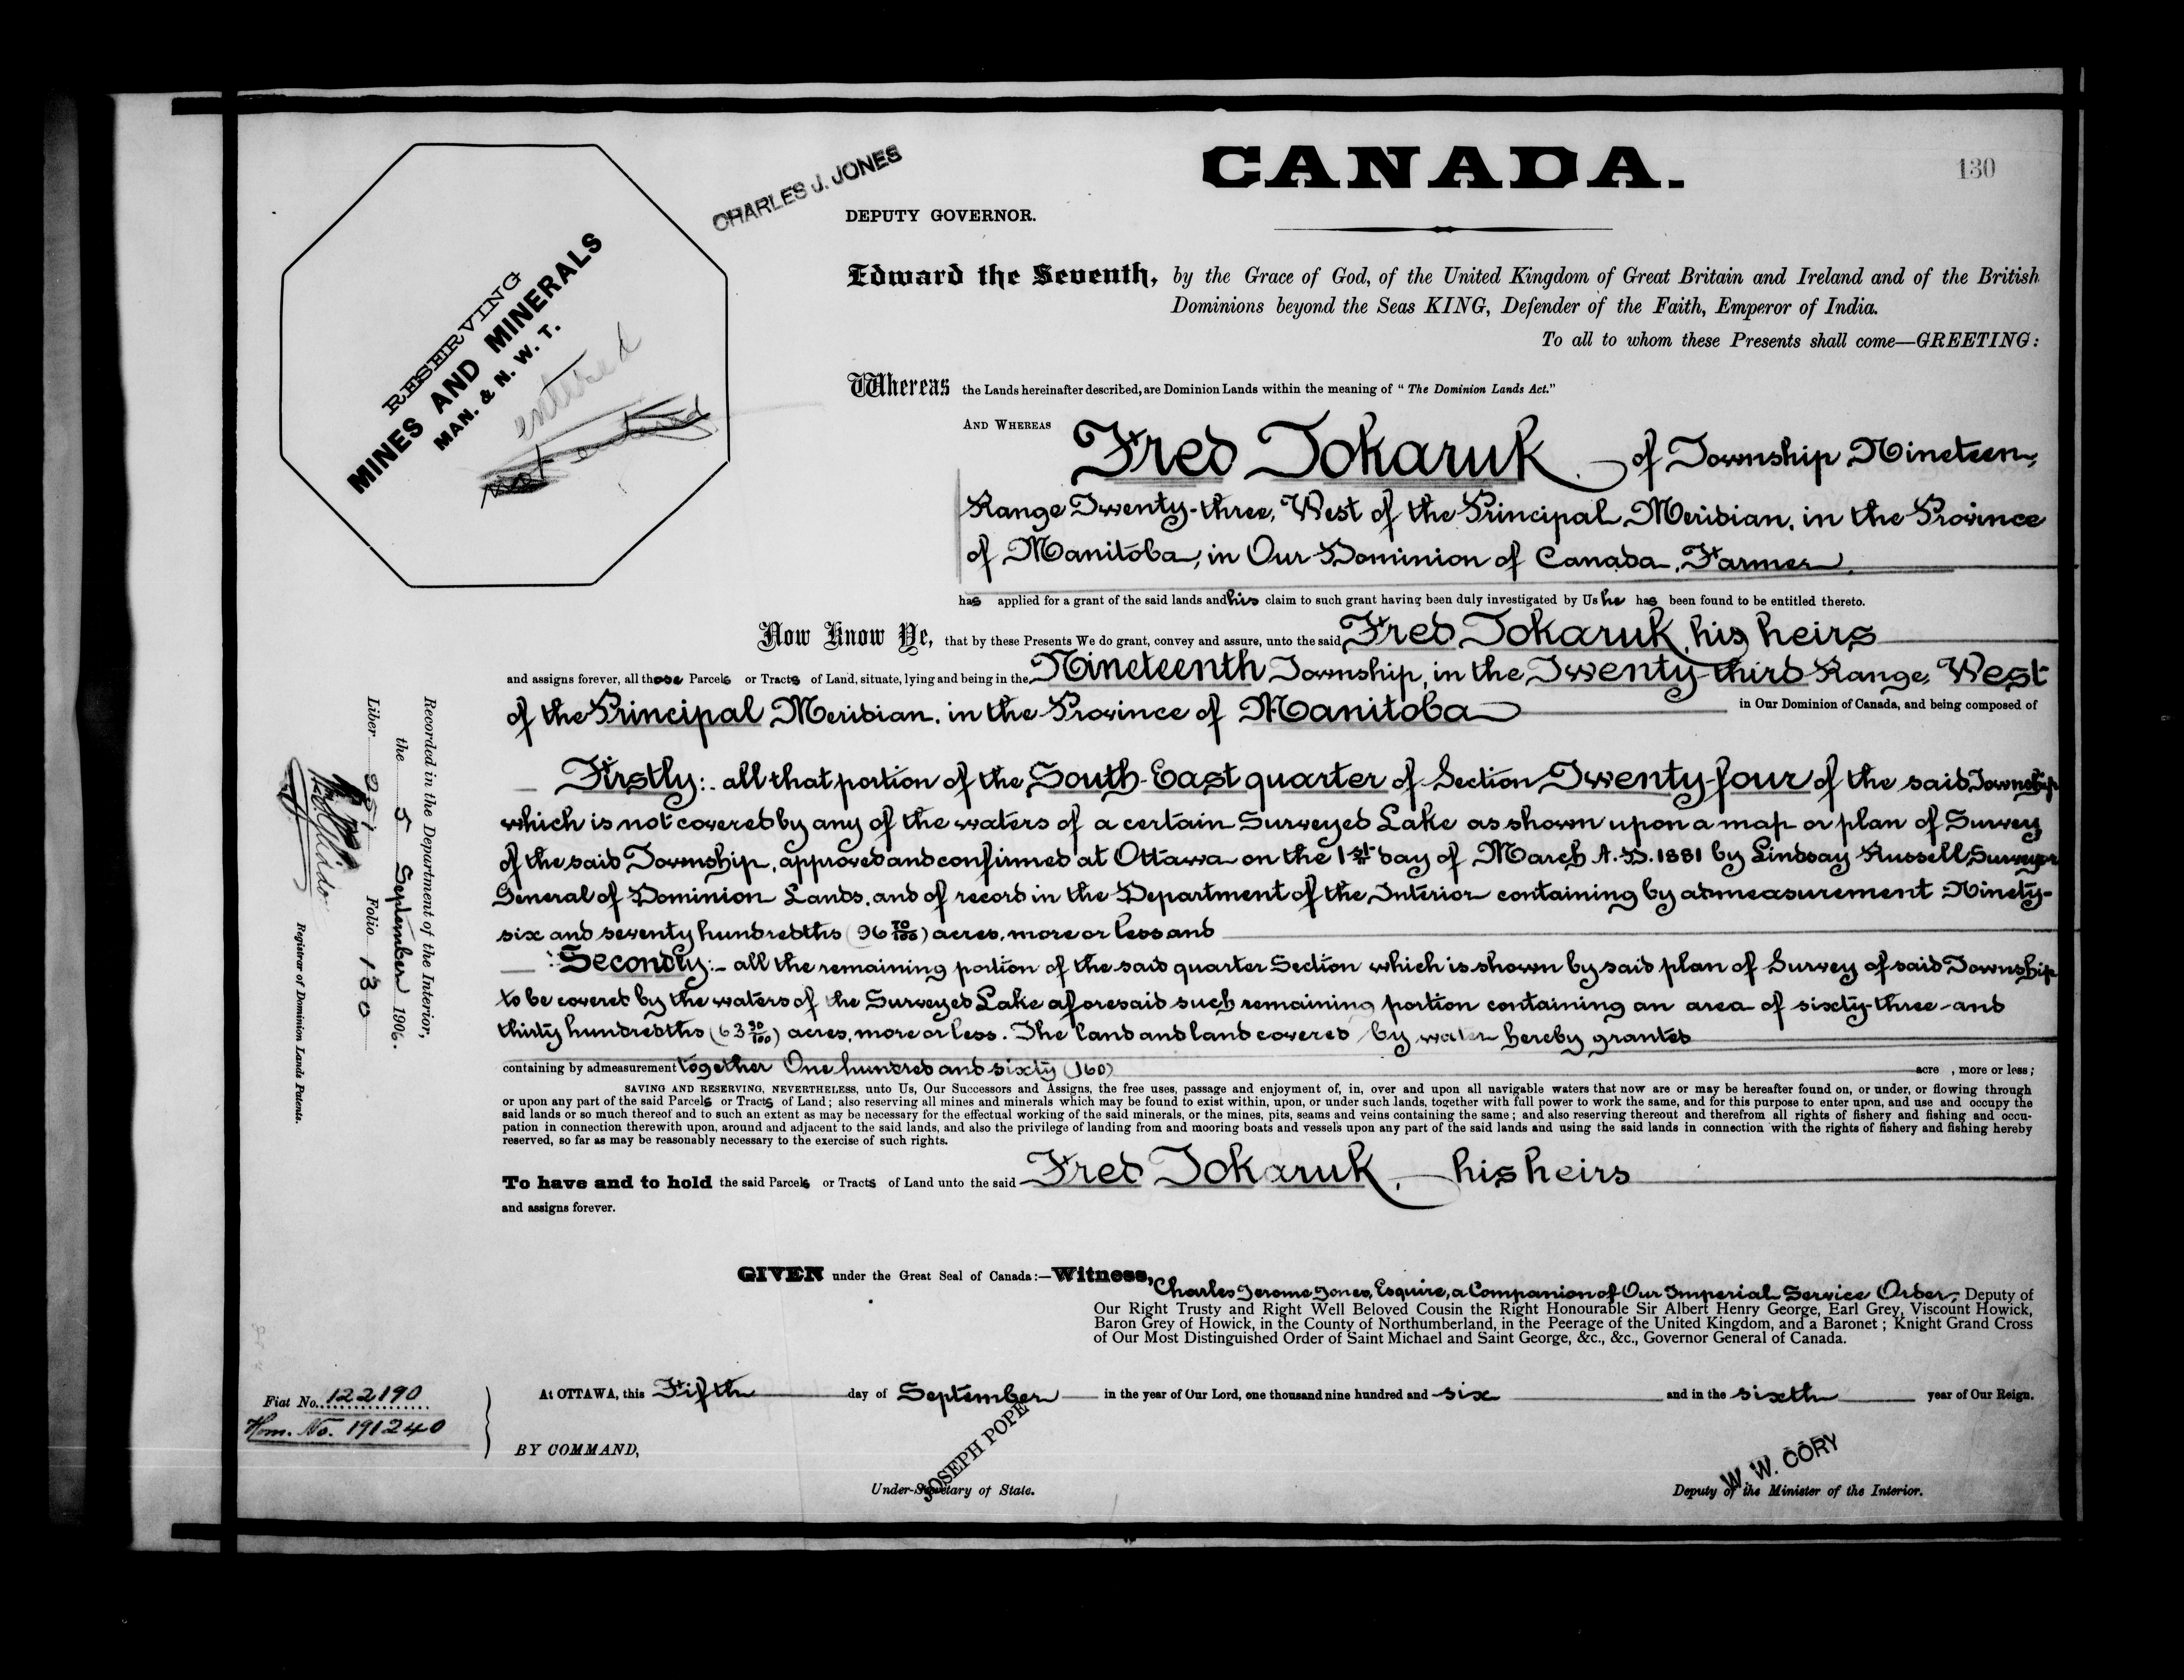 CANADA.
130
CHARLES J. JONES
DEPUTY GOVERNOR.
RESERVING
MINES AND MINERALS
MAN. & N. W. T.
entered
not entered
Edward the Seventh, by the Grace of God, of the United Kingdom of Great Britain and Ireland and of the British
Dominions beyond the Seas KING, Defender of the Faith, Emperor of India.
To all to whom these Presents shall come—GREETING:
Whereas the Lands hereinafter described, are Dominion Lands within the meaning of "The Dominion Lands Act."
AND WHEREAS Fred Tokaruk, of Township Nineteen,
Range Twenty-three, West of the Principal Meridian, in the Province
of Manitoba, in Our Dominion of Canada, Farmer,
has applied for a grant of the said lands and his claim to such grant having been duly investigated by Us he has been found to be entitled thereto.
Now Know Ye, that by these Presents We do grant, convey and assure, unto the said Fred Tokaruk, his heirs
and assigns forever, all those Parcels or Tracts of Land, situate, lying and being in the Nineteenth Township, in the Twenty-third Range, West
of the Principal Meridian, in the Province of Manitoba in Our Dominion of Canada, and being composed of
Firstly:- all that portion of the South-East quarter of Section Twenty four of the said Township
which is not covered by any of the waters of a certain Surveyed Lake as shown upon a map or plan of Survey
of the said Township, approved and confirmed at Ottawa on the 1st day of March A.D. 1881 by Lindsay Russell, Surveyor
General of Dominion Lands, and of record in the Department of the Interior containing by admeasurement Ninety-
six and seventy hundredths (96 70/100) acres, more or less and
Secondly:- all the remaining portion of the said quarter Section which is shown by said plan of Survey of said Township
to be covered by the waters of the Surveyed Lake aforesaid such remaining portion containing an area of sixty-three and
thirty hundredths (63 30/100) acres, more or less. The land and land covered by water hereby granted
containing by admeasurement together One hundred and sixty (160) acre , more or less;
SAVING AND RESERVING, NEVERTHELESS, unto Us, Our Successors and Assigns, the free uses, passage and enjoyment of, in, over and upon all navigable waters that now are or may be hereafter found on, or under, or flowing through
or upon any part of the said Parcels or Tracts of Land; also reserving all mines and minerals which may be found to exist within, upon, or under such lands, together with full power to work the same, and for this purpose to enter upon, and use and occupy the
said lands or so much thereof and to such an extent as may be necessary for the effectual working of the said minerals, or the mines, pits, seams and veins containing the same; and also reserving thereout and therefrom all rights of fishery and fishing and occu-
pation in connection therewith upon, around and adjacent to the said lands, and also the privilege of landing from and mooring boats and vessels upon any part of the said lands and using the said lands in connection with the rights of fishery and fishing hereby
reserved, so far as may be reasonably necessary to the exercise of such rights.
To have and to hold the said Parcels or Tracts of Land unto the said Fred Tokaruk, his heirs
and assigns forever.
GIVEN under the Great Seal of Canada:—Witness, Charles Jerome Jones, Esquire, a Companion of Our Imperial Service Order, Deputy of
Our Right Trusty and Right Well Beloved Cousin the Right Honourable Sir Albert Henry George, Earl Grey, Viscount Howick,
Baron Grey of Howick, in the County of Northumberland, in the Peerage of the United Kingdom, and a Baronet; Knight Grand Cross
of Our Most Distinguished Order of Saint Michael and Saint George, &c., &c., Governor General of Canada.
At OTTAWA, this Fifth day of September in the year of Our Lord, one thousand nine hundred and six and in the sixth year of Our Reign.
BY COMMAND,
JOSEPH POPE
Under-Secretary of State.
W. W. CORY
Deputy of the Minister of the Interior.
Fiat No. 122190
Hom. No. 191240
Recorded in the Department of the Interior,
the 5 September 1906.
Liber 251 Folio 130
Registrar of Dominion Lands Patents.